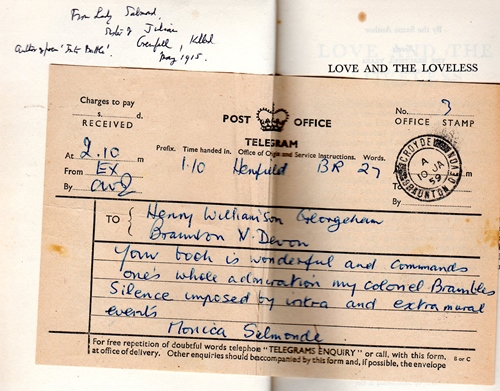 From Lady Salmond,
Sister of Julian
Grenfell, killed
May 1915.
Author of poem 'Into Battle'.
LOVE AND THE
LOVE AND THE LOVELESS
Charges to pay
s. d.
RECEIVED
POST OFFICE
TELEGRAM
No. 3
OFFICE STAMP
Prefix. Time handed in. Office of Origin and Service Instructions. Words.
At 2.10 m
1.10 Henfield BR 27
From EX
By
To m
By
CROYDE
BRAUNTON DEVON
A
10 JA
59
TO Henry Williamson Georgeham
Braunton N. Devon
Your book is wonderful and commands
one's whole admiration my colonel Brambles
Silence imposed by intra and extra mural
events
Monica Salmonde
For free repetition of doubtful words telephone "TELEGRAMS ENQUIRY" or call, with this form,
at office of delivery. Other enquiries should be accompanied by this form and, if possible, the envelope
B or C